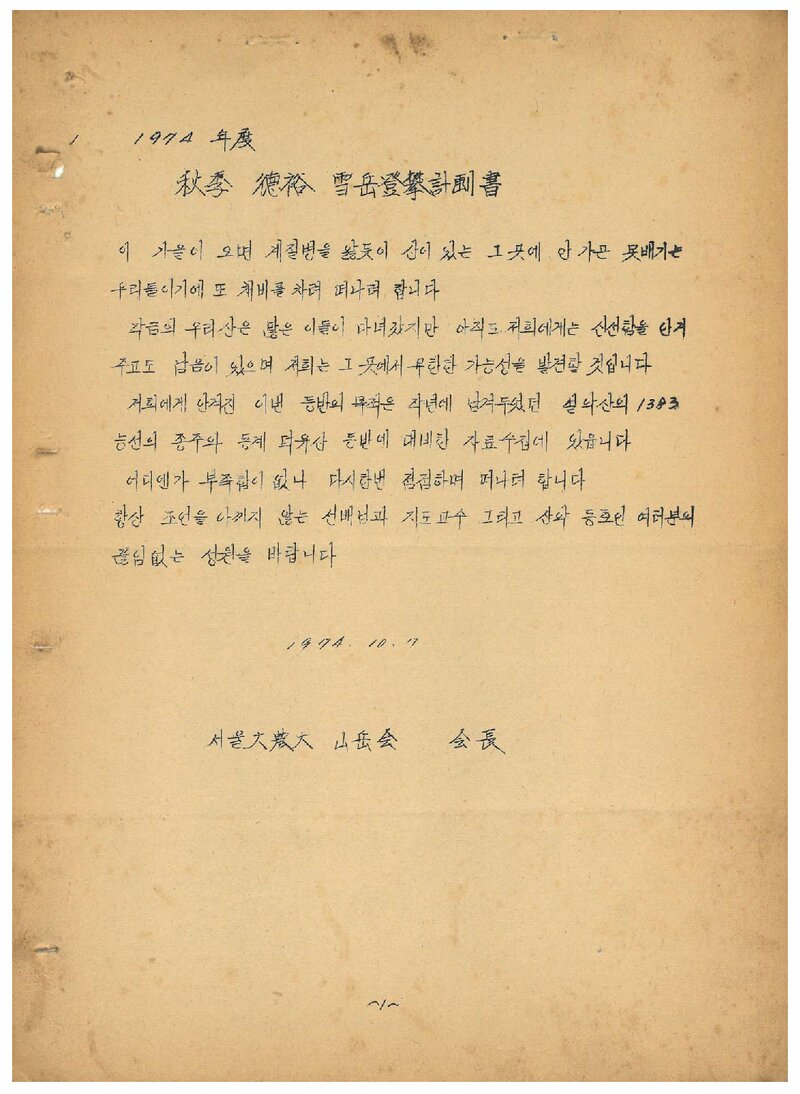 1974 年度
秋季 德裕 雪岳登攀計劃書
이 가을이 오면 계절병을 앓듯이 산이 있는 그 곳에 안 가곤 못배기는
우리들이기에 또 채비를 차려 떠나려 합니다
작금의 우리산은 많은 이들이 다녀갔지만 아직도 저희에게는 신선함을 안겨
주고도 남음이 있으며 저희는 그 곳에서 무한한 가능성을 발견할 것입니다
저희에게 안겨진 이번 등반의 목적은 작년에 남겨두었던 설악산의 1383
능선의 종주와 동계 덕유산 등반에 대비한 자료수집에 있읍니다
어디엔가 부족합이 없나 다시한번 점검하며 떠나려 합니다
항상 조언을 아끼지 않는 선배님과 지도교수 그리고 산악 동호인 여러분의
끊임없는 성원을 바랍니다
1974. 10. 7
서울大農大 山岳会 会長
~1~